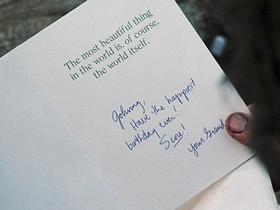 The most beautiful thing
in the world is, of course,
the world itself.
Johnny,
Have the happiest
birthday ever!
Score!
Your friend